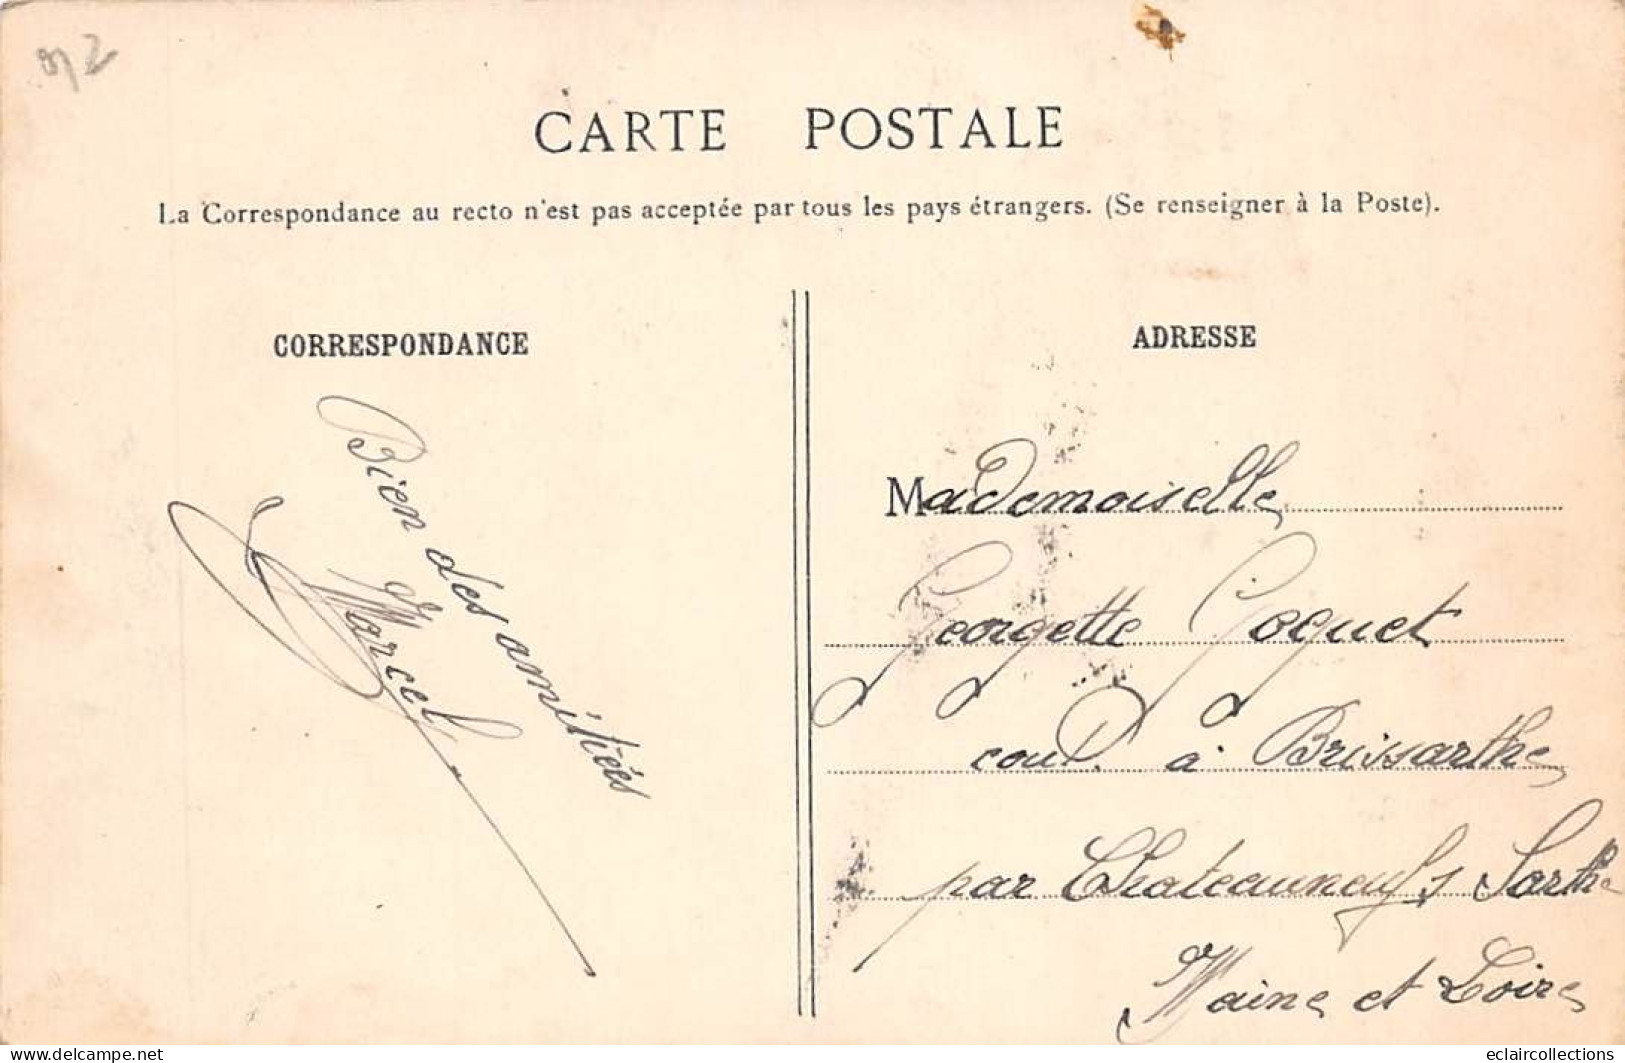 92
CARTE POSTALE
La Correspondance au recto n'est pas acceptée par tous les pays étrangers. (Se renseigner à la Poste).
CORRESPONDANCE
Bien des amitiés
Marcel
ADRESSE
Mademoiselle
Georgette Goguet
cout. à Brissarthe
par Chateauneuf s Sarthe
Maine et Loire
www.delcampe.net
eclaircollections